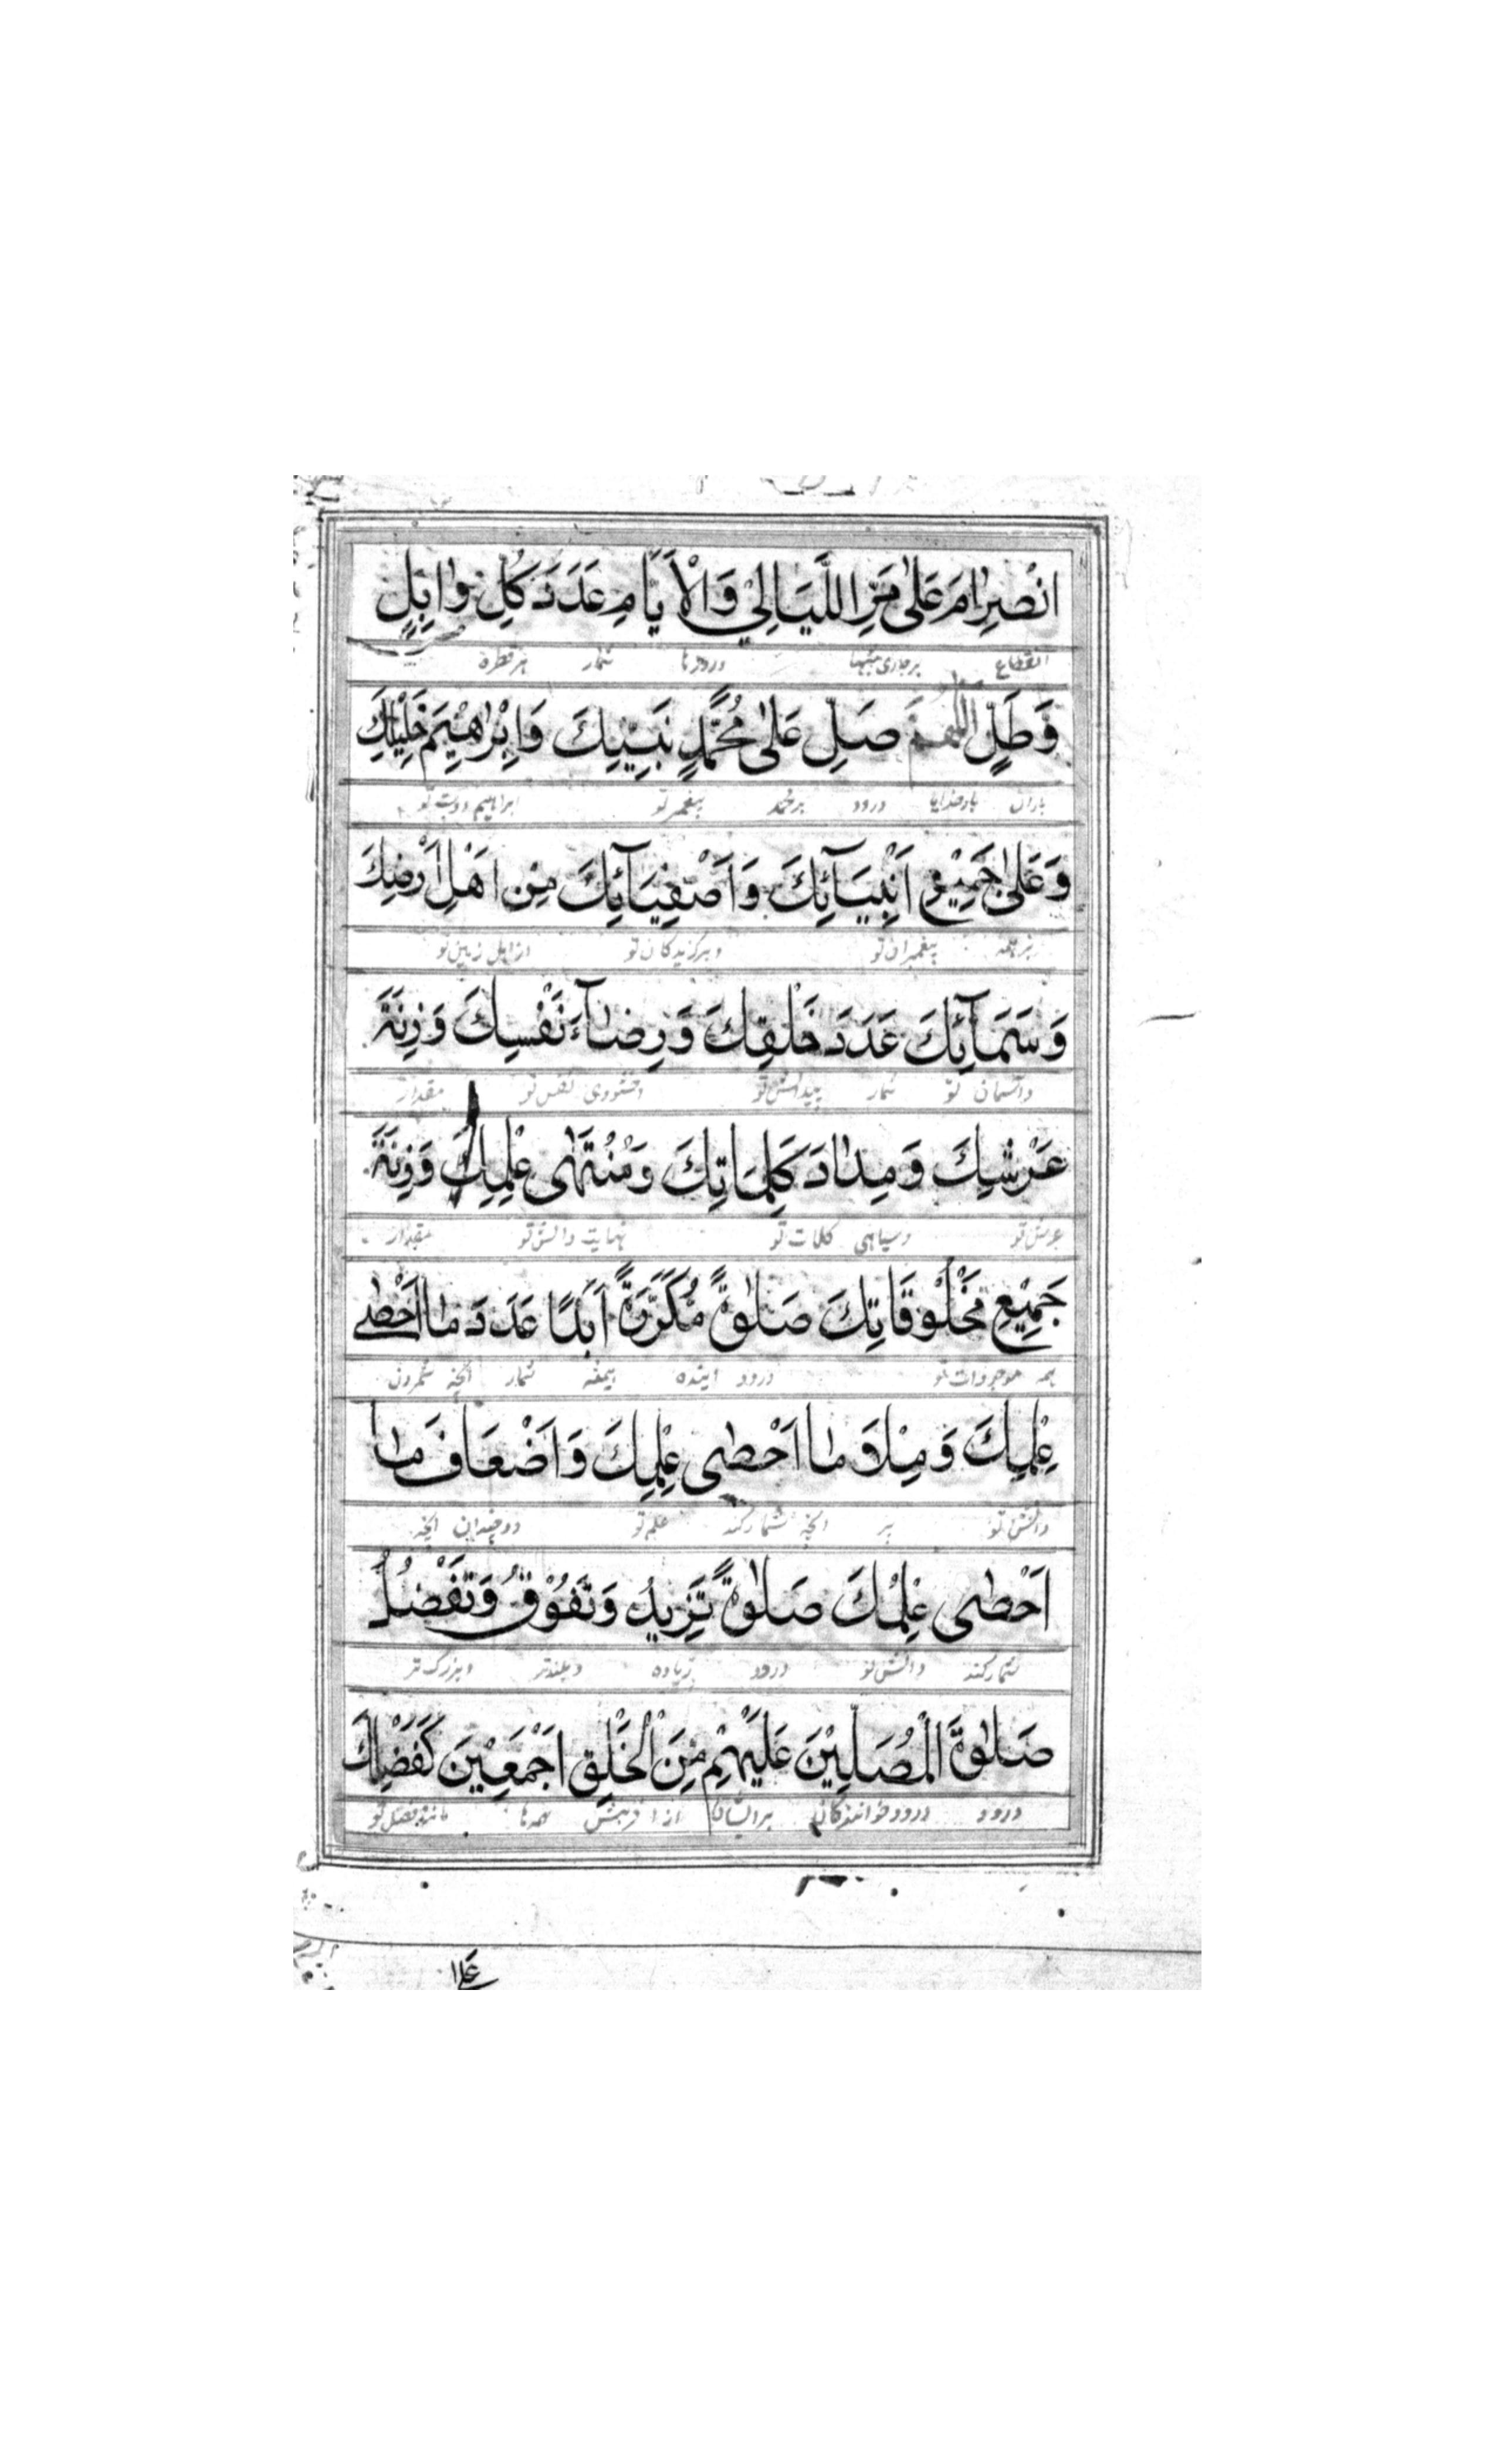 انْصِرٰامَ عَلٰى مَرِّ اللَّيَالِيْ وَالْاَيَّامِ عَدَدَ كُلِّ وٰابِلٍ
انقطاع برجاری شبها وروزها شمار هر قطره
وَطَلٍّ اللهمَّ صَلِّ عَلٰى مُحَمَّدٍ نَبِيِّكَ وَاِبْرٰاهِيْمَ خَلِيْلِكَ
باران بارخدایا درود برمحمد پیغمبر تو ابراهیم دوست تو
وَعَلٰى جَمِيْعِ اَنْبِيَآئِكَ وَاَصْفِيَآئِكَ مِنْ اَهْلِ اَرْضِكَ
برهمه پیغمبران تو وبرگزیدگان تو از اهل زمین تو
وَسَمَآئِكَ عَدَدَ خَلْقِكَ وَرِضٰآءَ نَفْسِكَ وَزِنَةَ
واسمان تو شمار پیدائش تو خشنودی نفس تو مقدار
عَرْشِكَ وَمِدٰادَ كَلِمَاتِكَ وَمُنْتَهٰى عِلْمِكَ وَزِنَةَ
عرش تو وسیاهی کلمات تو نهایت دانش تو مقدار
جَمِيْعِ مَخْلُوْقَاتِكَ صَلٰوةً مُكَرَّرَةً اَبَدًا عَدَدَ مٰا اَحْصٰى
همه موجودات تو درود اینده همیشه شمار انچه شمردن
عِلْمِكَ وَمِلَاَ مٰا اَحْصٰى عِلْمِكَ وَاَضْعَافَ مٰا
دانش تو پر انچه شمارکند علم تو دوچندان انچه
اَحْصٰى عِلْمُكَ صَلٰوةً تَزِيدُ وَتَفُوْقُ وَتَفْضُلُ
شمارکند دانش تو درود زیاده وبلندتر وبزرگ تر
صَلٰوةَ الْمُصَلِّيْنَ عَلَيْهِمْ مِنَ الْخَلْقِ اَجْمَعِيْنَ كَفَضْلِكَ
درود درودخوانندگان برایشان از افرینش همه‌ها مانند فضل تو
عَلٰا